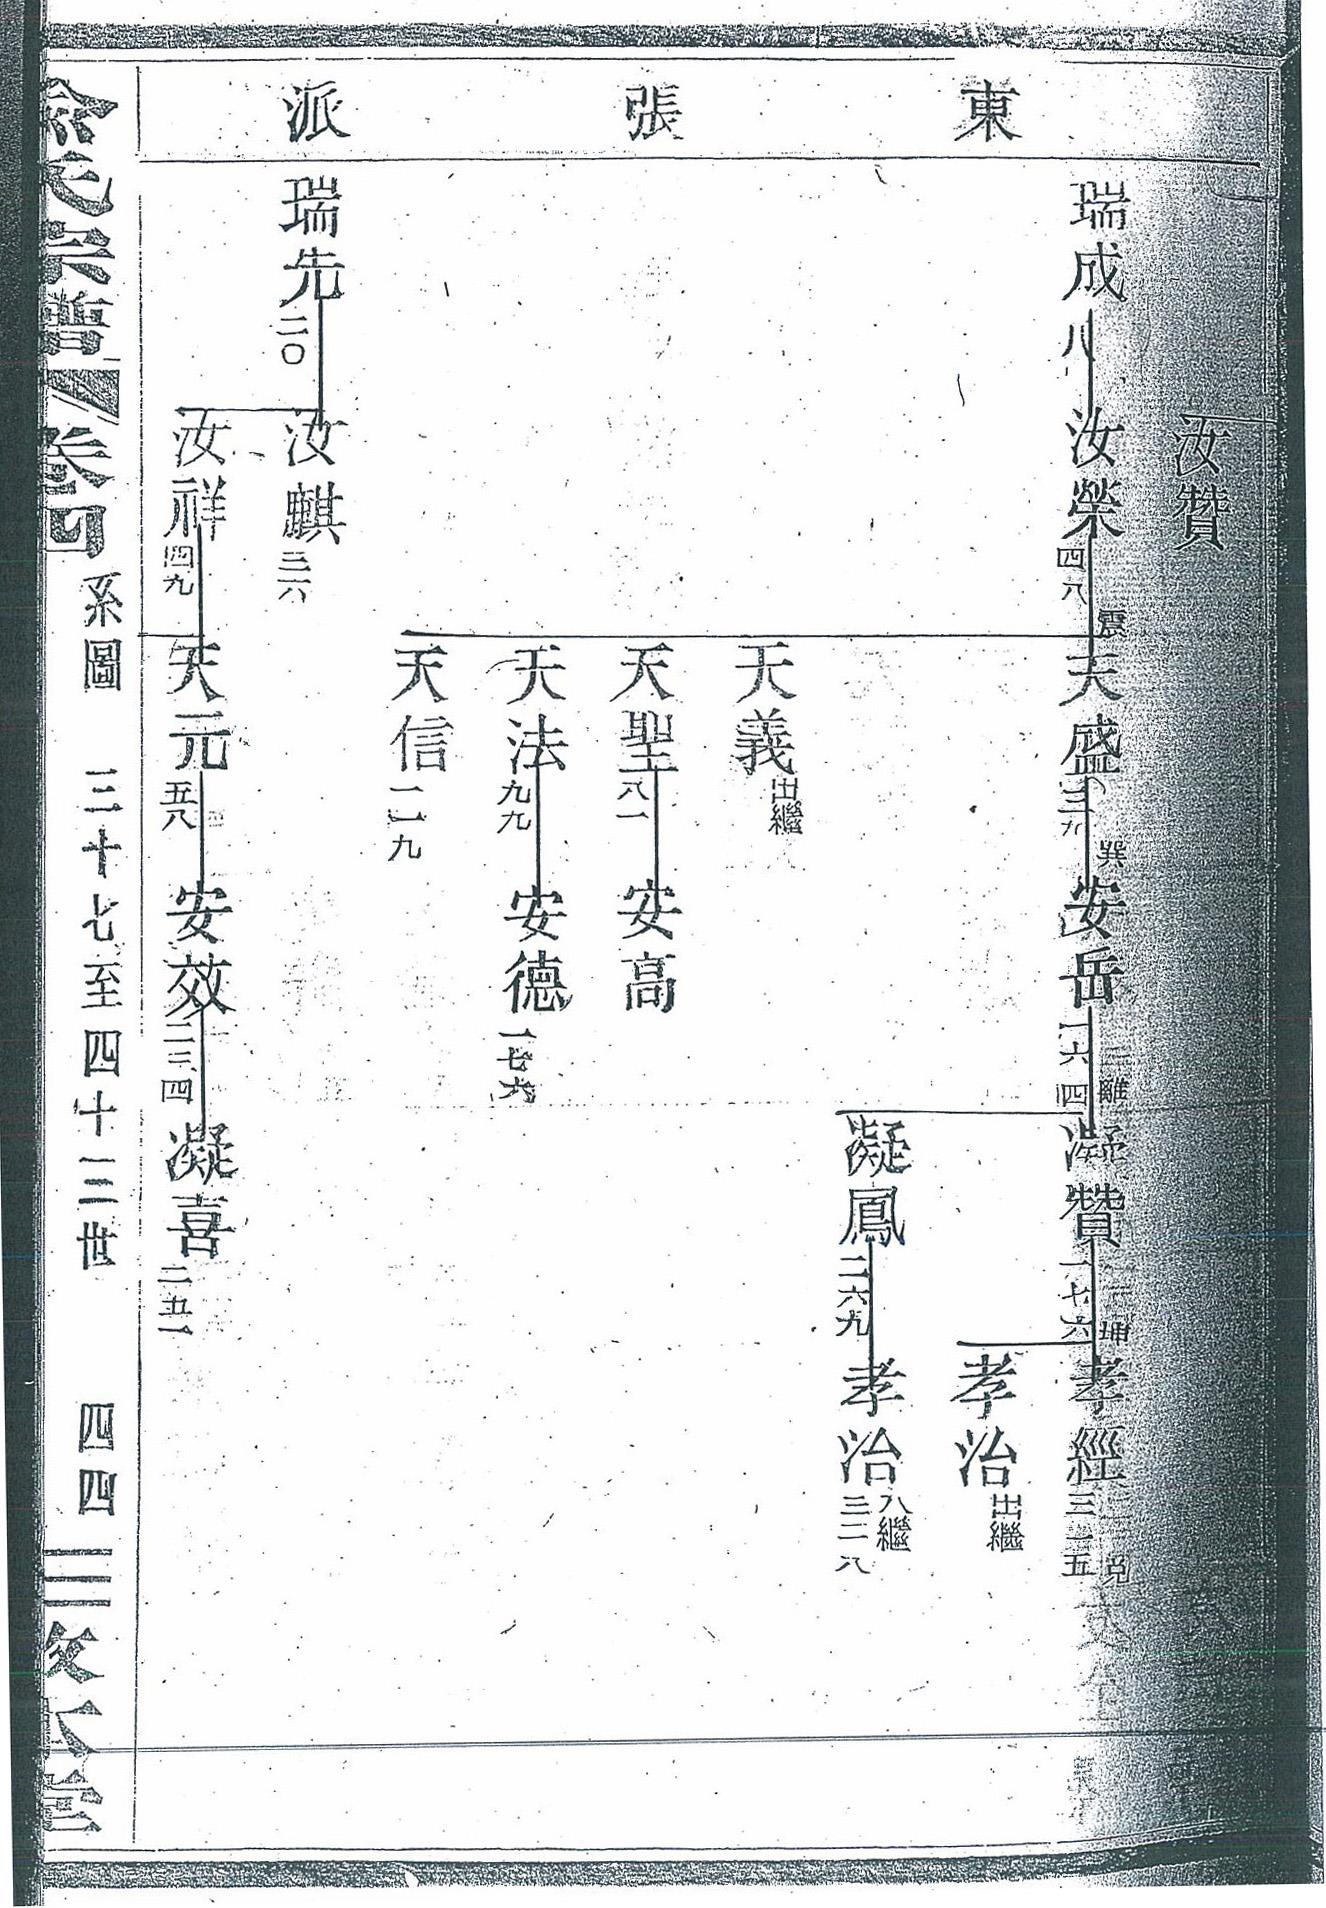 東張派
汝贊
瑞成 八
汝榮 四八
震
天盛 三九
巽
安岳 一六四
離
凝贊 一七六
孝經 三一五
兌
孝治 出繼
凝鳳 二六九
孝治 入繼 三二八
天義 出繼
天聖 八一
安高
天法 九九
安德 一七六
天信 一一九
瑞先 二〇
汝麒 三六
汝祥 四九
天元 五八
安效 二三四
凝喜 二五一
俞氏宗譜 卷四 系圖 三十七至四十三世 四四 三